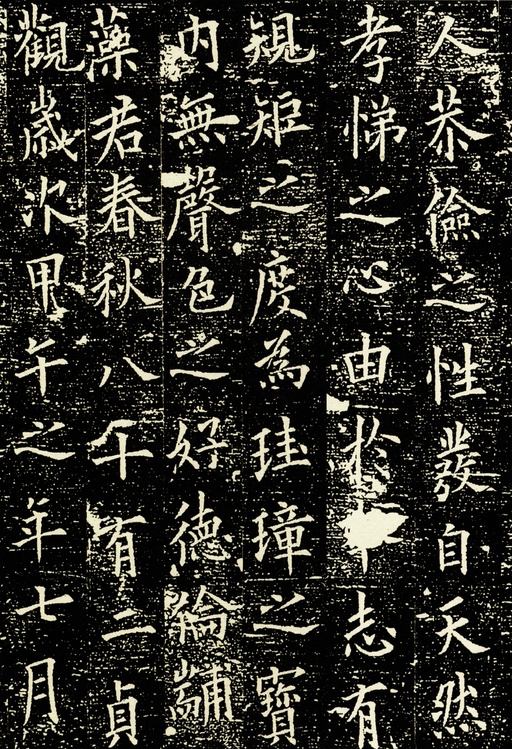 人恭儉之性發自天然
孝悌之心由於志有
規矩之度為珪璋之寶
內無聲色之好德綸黼
藻君春秋八十有二貞
觀歲次甲午之年七月